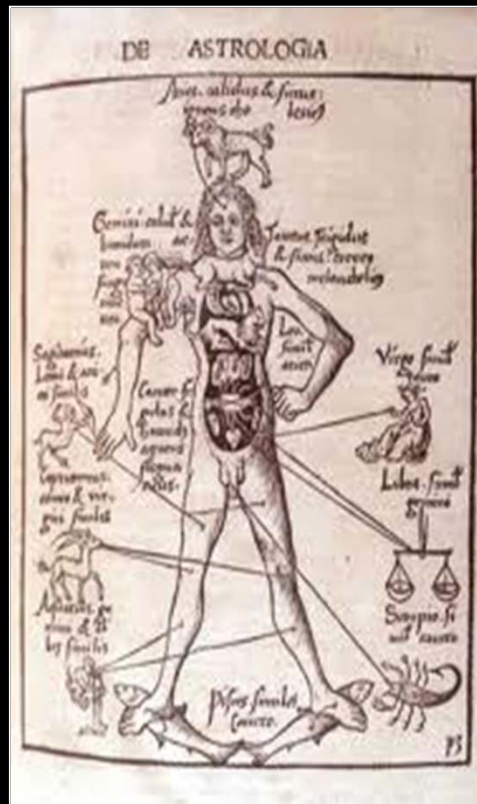 DE ASTROLOGIA
Aries. calidus & siccus:
igneus cho lericus
Gemini calid' &
humidus
Taurus. frigidus
& siccus. terreus
melancolicus
Leo.
simil'
arieti
Sagittarius.
Leoni & arie
ti similis
Cancer fri
gidus &
humidus
aqueus
Virgo simil'
Capricornus.
& vir
gini similis
Libra. simil'
gemini
Aquarius. ge
mini & li
bre similis
Scorpio. si
mil' cancro
Pisces similes
Cancro.